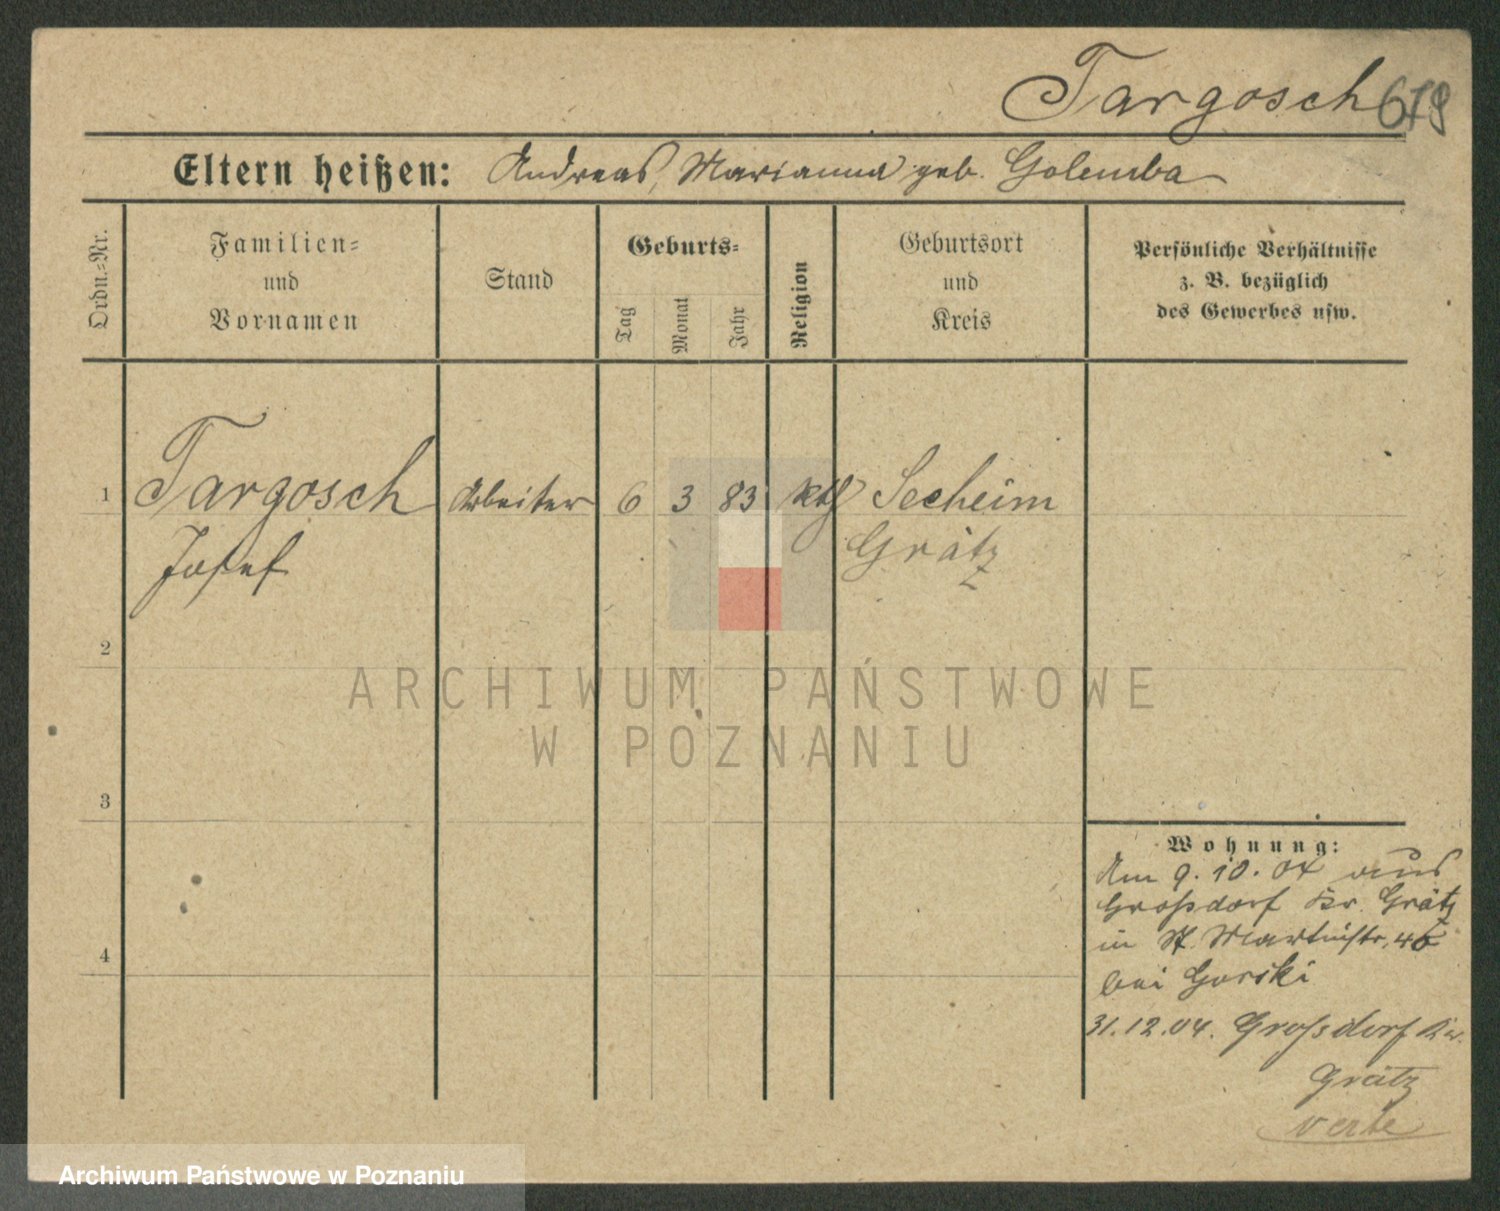 Targosch 679
Eltern heißen: Andreas, Marianna geb. Golemba
Ordn.=Nr.
Familien=
und
Vornamen
Stand
Geburts=
Tag
Monat
Jahr
Religion
Geburtsort
und
Kreis
Persönliche Verhältnisse
z. B. bezüglich
des Gewerbes usw.
1 Targosch Arbeiter 6 3 83 kth Seeheim
Josef Grätz
2
3
4
Wohnung:
Am 9.10.04 aus
Großdorf Kr. Grätz
in St. Martinstr. 46
bei Gorski
31.12.04. Großdorf Kr.
Grätz
verte
ARCHIWUM PAŃSTWOWE
W POZNANIU
Archiwum Państwowe w Poznaniu